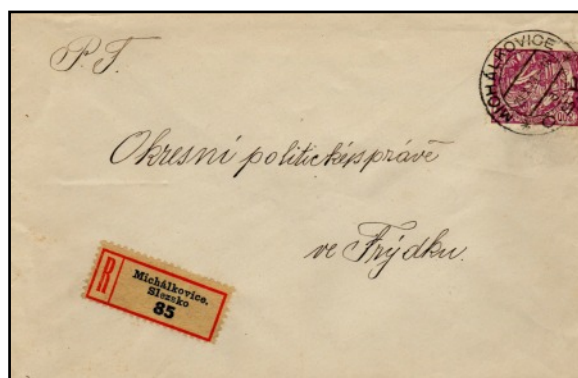 P. T.
MICHÁLKOVICE
Okresní politicképsprávě
ve Frýdku.
R
Michálkovice.
Slezsko
85